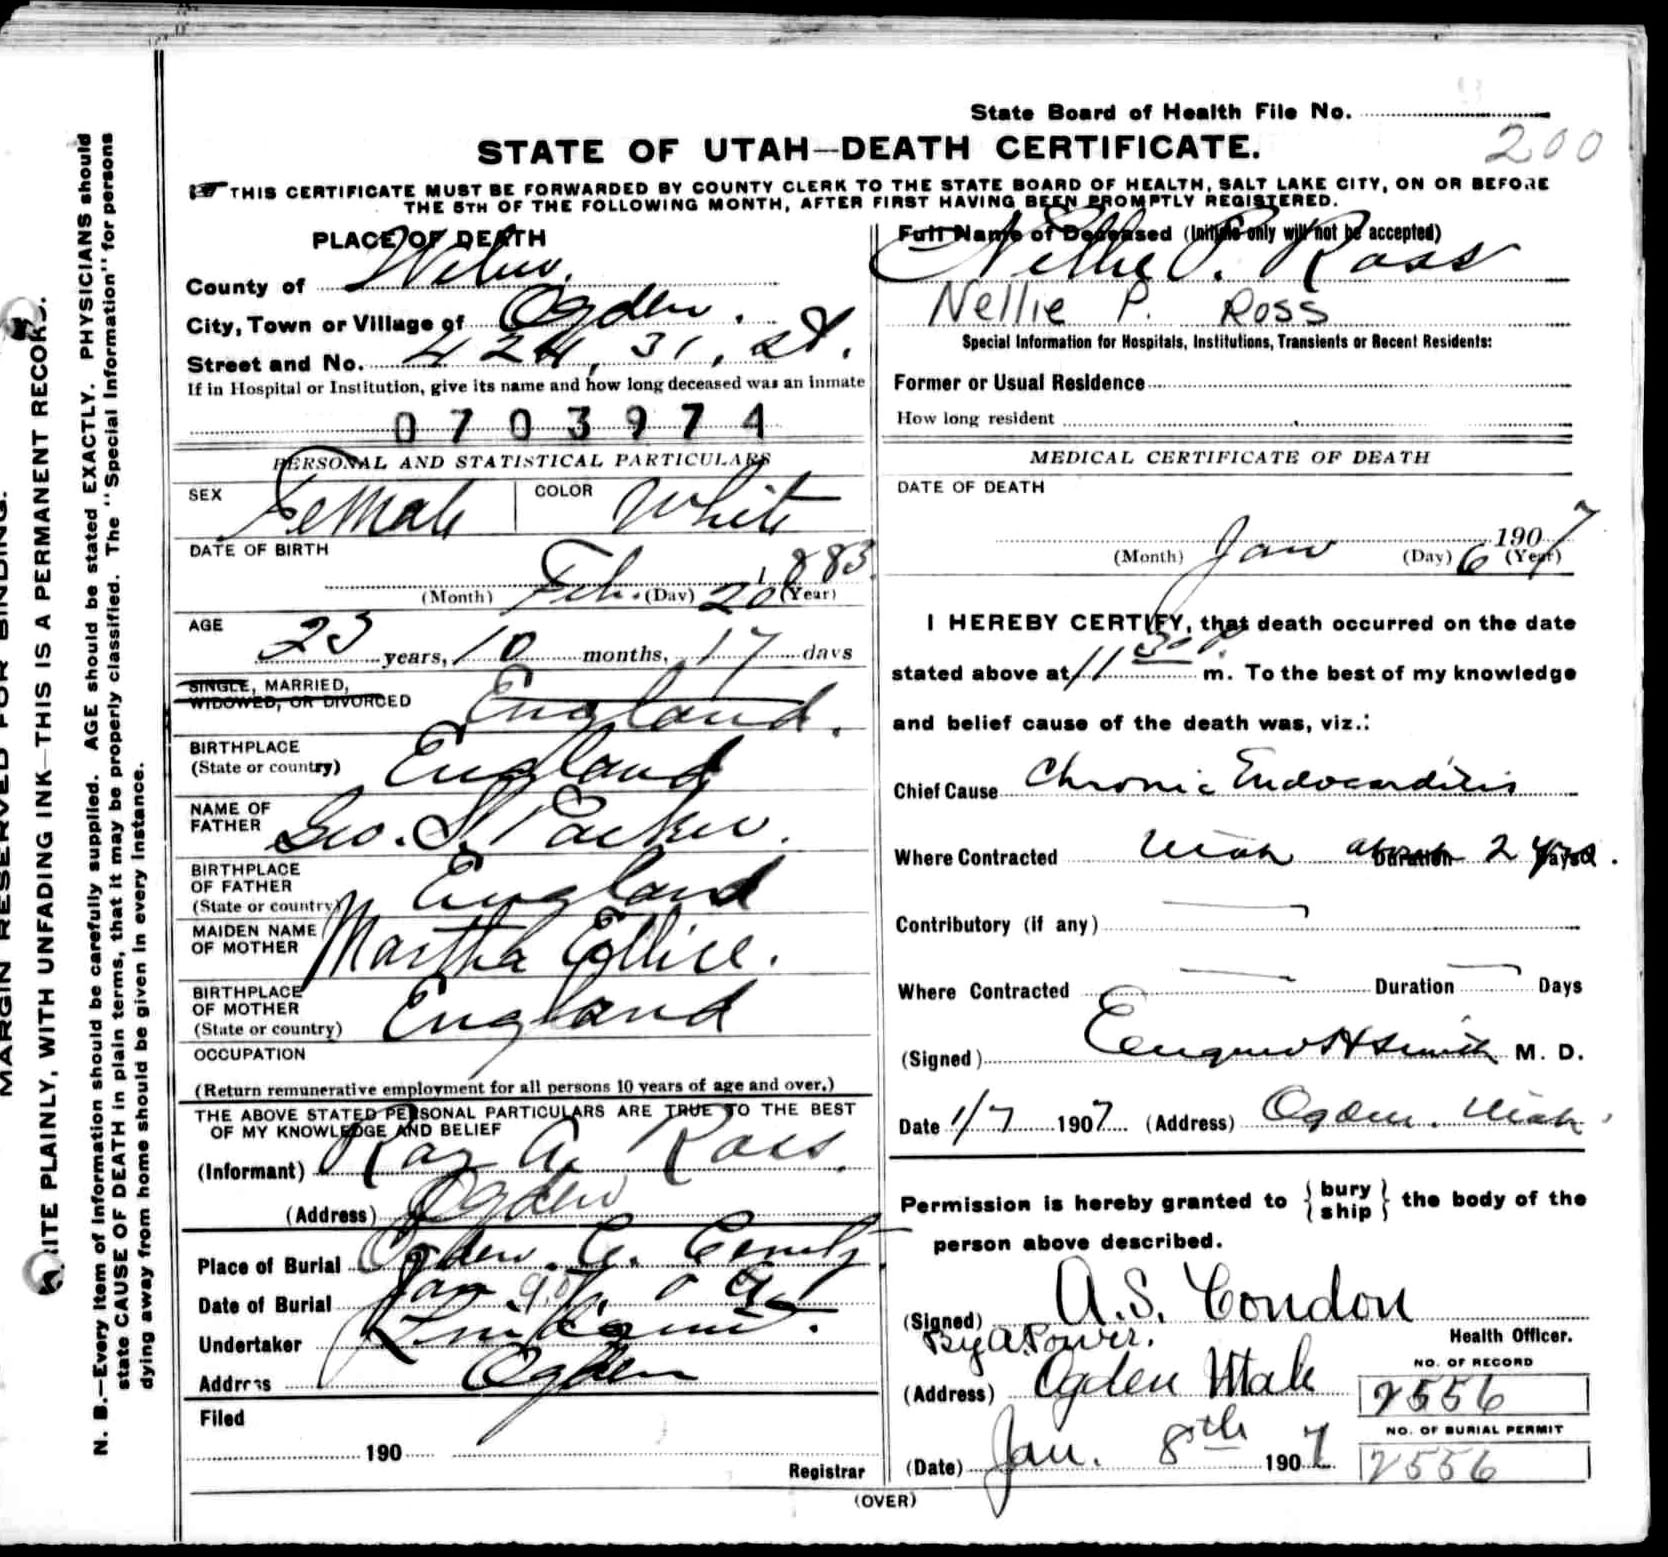 MARGIN RESERVED FOR BINDING.
WRITE PLAINLY, WITH UNFADING INK—THIS IS A PERMANENT RECORD.
N. B.—Every item of information should be carefully supplied. AGE should be stated EXACTLY. PHYSICIANS should
state CAUSE OF DEATH in plain terms, that it may be properly classified. The "Special Information" for persons
dying away from home should be given in every instance.
State Board of Health File No.
200
STATE OF UTAH—DEATH CERTIFICATE.
THIS CERTIFICATE MUST BE FORWARDED BY COUNTY CLERK TO THE STATE BOARD OF HEALTH, SALT LAKE CITY, ON OR BEFORE
THE 5TH OF THE FOLLOWING MONTH, AFTER FIRST HAVING BEEN PROMPTLY REGISTERED.
PLACE OF DEATH
County of Weber.
City, Town or Village of Ogden.
Street and No. 424, 31, St.
If in Hospital or Institution, give its name and how long deceased was an inmate
0703974
PERSONAL AND STATISTICAL PARTICULARS
SEX Female COLOR White
DATE OF BIRTH
(Month) Feb. (Day) 20 (Year) 1883
AGE
23 years, 10 months, 17 days
SINGLE, MARRIED,
WIDOWED, OR DIVORCED England.
BIRTHPLACE
(State or country) England
NAME OF
FATHER Geo. S. Parker.
BIRTHPLACE
OF FATHER
(State or country) England
MAIDEN NAME
OF MOTHER Martha Ellice.
BIRTHPLACE
OF MOTHER
(State or country) England
OCCUPATION
(Return remunerative employment for all persons 10 years of age and over.)
THE ABOVE STATED PERSONAL PARTICULARS ARE TRUE TO THE BEST
OF MY KNOWLEDGE AND BELIEF
(Informant) Ray A. Ross.
(Address) Ogden
Place of Burial Ogden C. Cemty
Date of Burial Jan 9
Undertaker
Address Ogden
Filed
190
Registrar
Full Name of Deceased (Initials only will not be accepted)
Nellie P. Ross
Nellie P. Ross
Special Information for Hospitals, Institutions, Transients or Recent Residents:
Former or Usual Residence
How long resident
MEDICAL CERTIFICATE OF DEATH
DATE OF DEATH
(Month) Jan (Day) 6 1907 (Year)
I HEREBY CERTIFY, that death occurred on the date
stated above at 11 30 P. m. To the best of my knowledge
and belief cause of the death was, viz.:
Chief Cause Chronic Endocarditis
Where Contracted Utah about Duration 2 yrs Days.
Contributory (if any)
Where Contracted Duration Days
(Signed) H Smith M. D.
Date 1/7 1907 (Address) Ogden. Utah.
Permission is hereby granted to {bury ship} the body of the
person above described.
(Signed) A.S. Condon
By A. Power. Health Officer.
(Address) Ogden Utah
NO. OF RECORD
2556
NO. OF BURIAL PERMIT
2556
(Date) Jan. 8th 1907
(OVER)